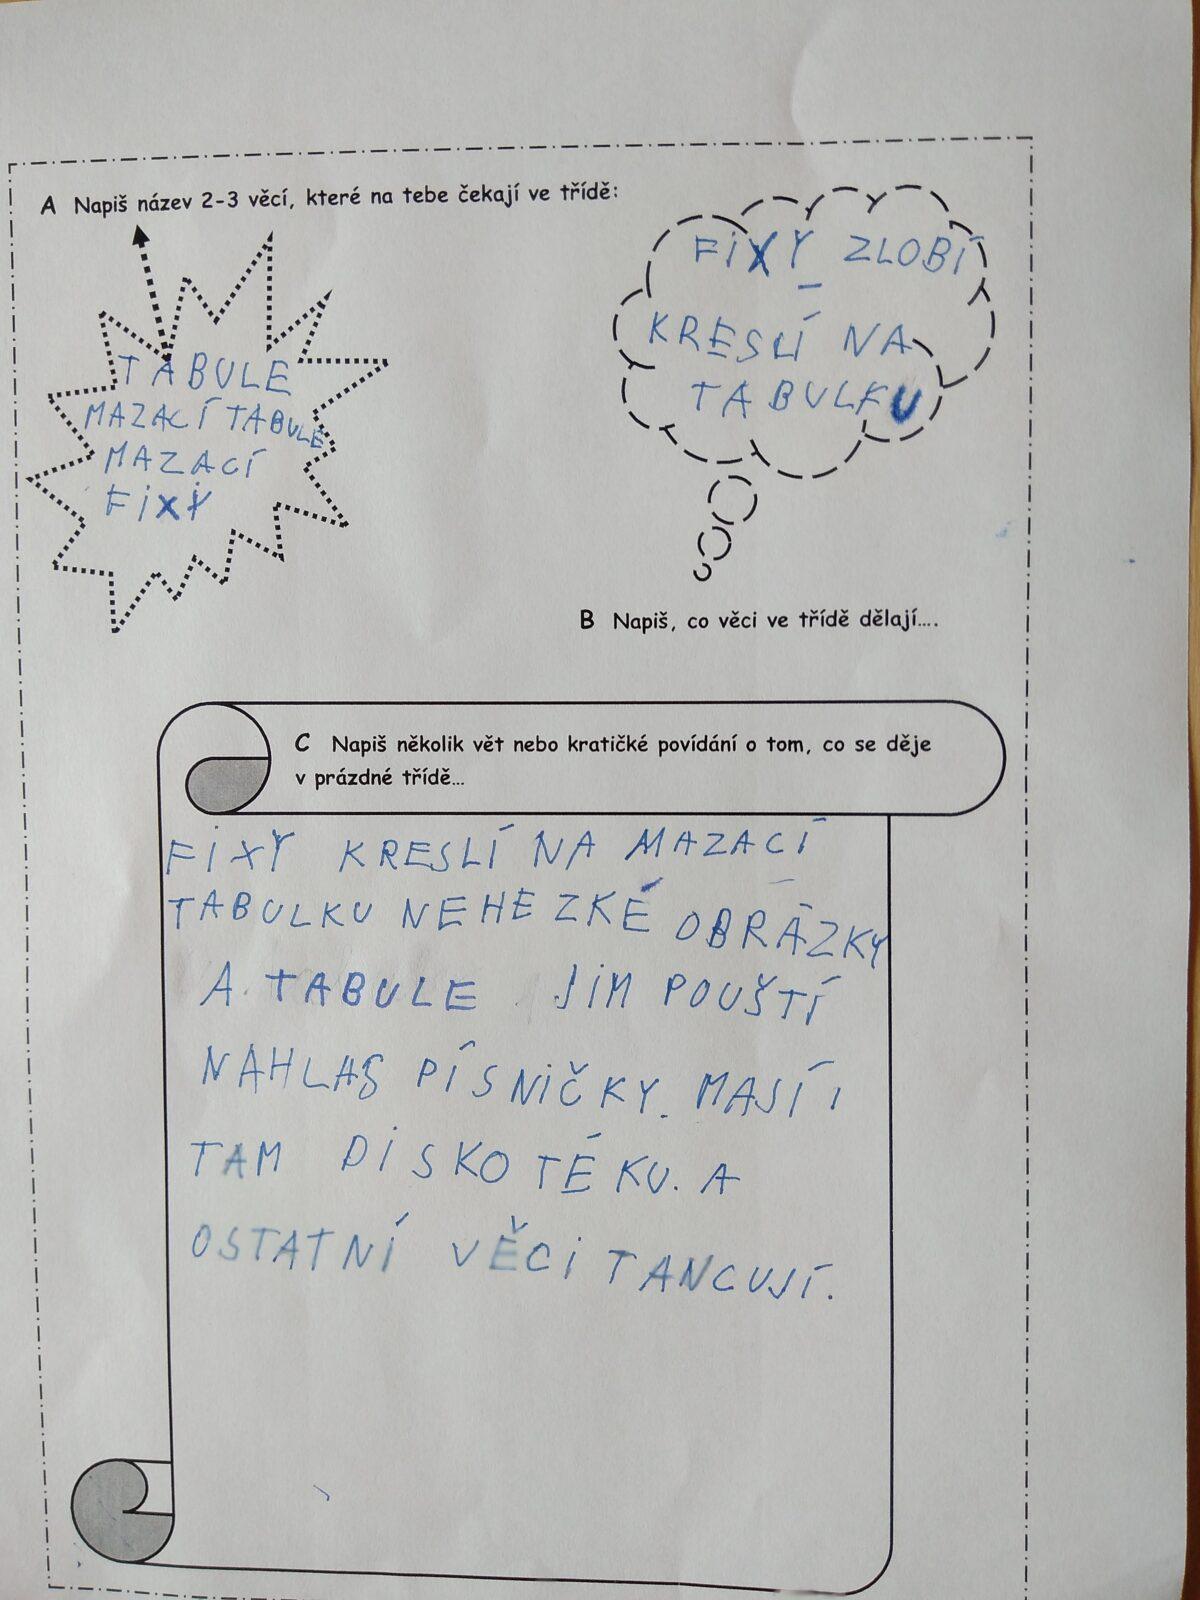 A Napiš název 2-3 věcí, které na tebe čekají ve třídě:
TABULE
MAZACÍ TABULE
MAZACÍ
FIXY
FIXY ZLOBÍ
KRESLÍ NA
TABULKU
B Napiš, co věci ve třídě dělají....
C Napiš několik vět nebo kratičké povídání o tom, co se děje
v prázdné třídě...
FIXY KRESLÍ NA MAZACÍ
TABULKU NEHEZKÉ OBRÁZKY
A TABULE JIM POUŠTÍ
NAHLAS PÍSNIČKY. MAJÍ I
TAM DISKOTÉKU. A
OSTATNÍ VĚCI TANCUJÍ.